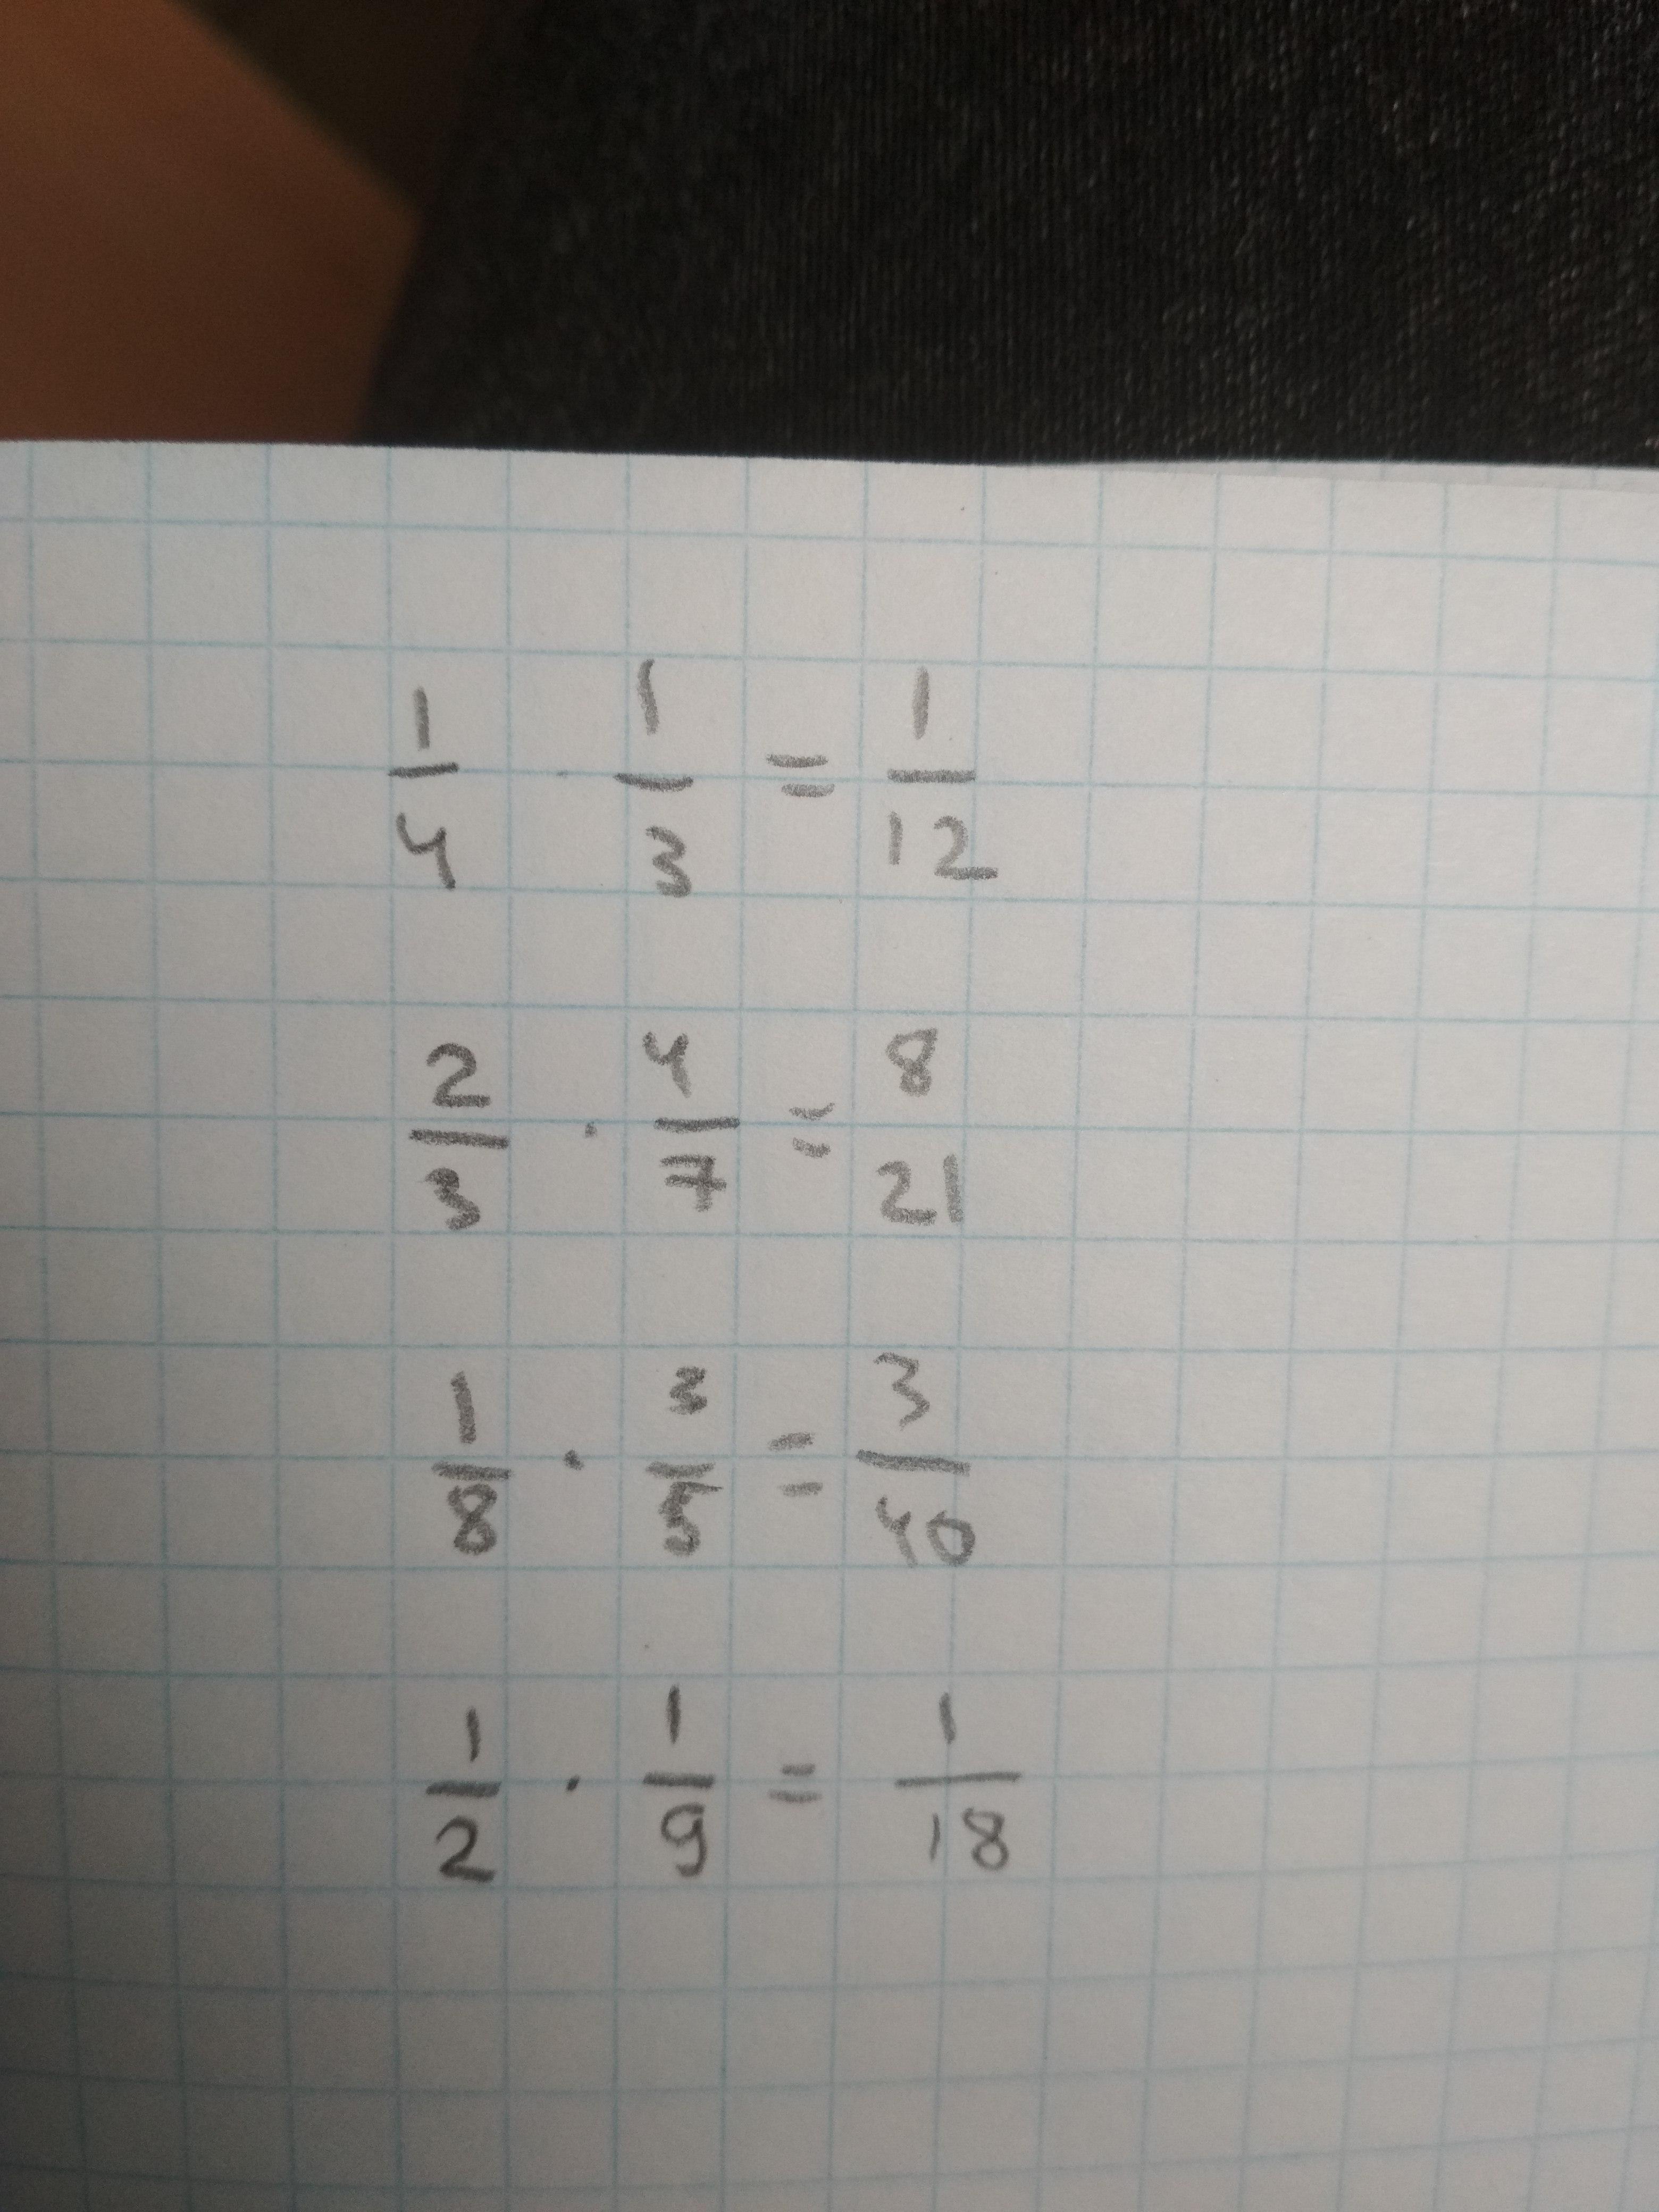 1/4 · 1/3 = 1/12
2/3 · 4/7 = 8 21
1/8 · 3/5 = 3/40
1/2 · 1/9 = 1/18